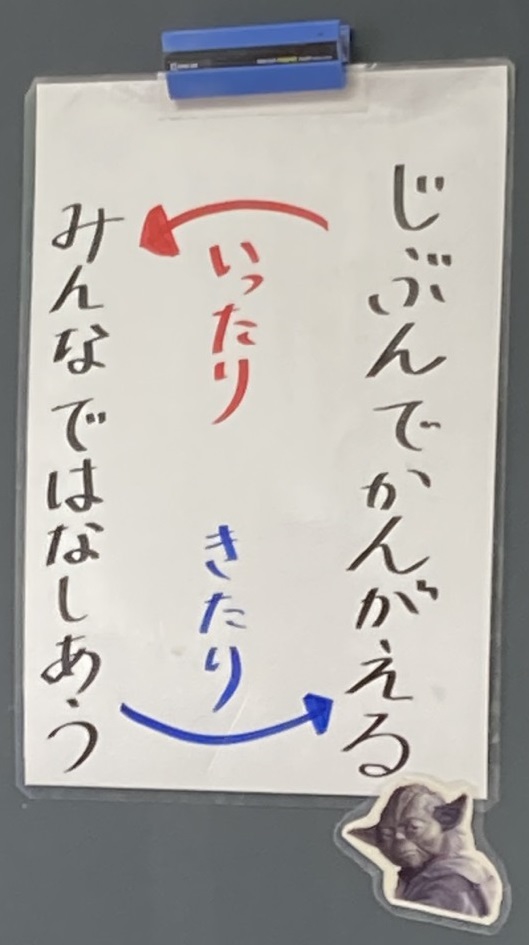 じぶんでかんがえる
いったり
きたり
みんなではなしあう